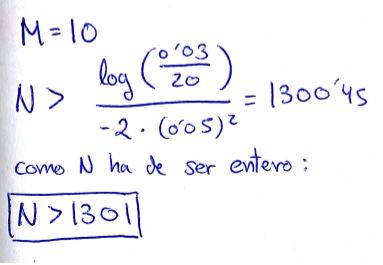 M = 10
N > log (0'03 / 20) / -2 · (0'05)² = 1300'45
como N ha de ser entero :
N > 1301